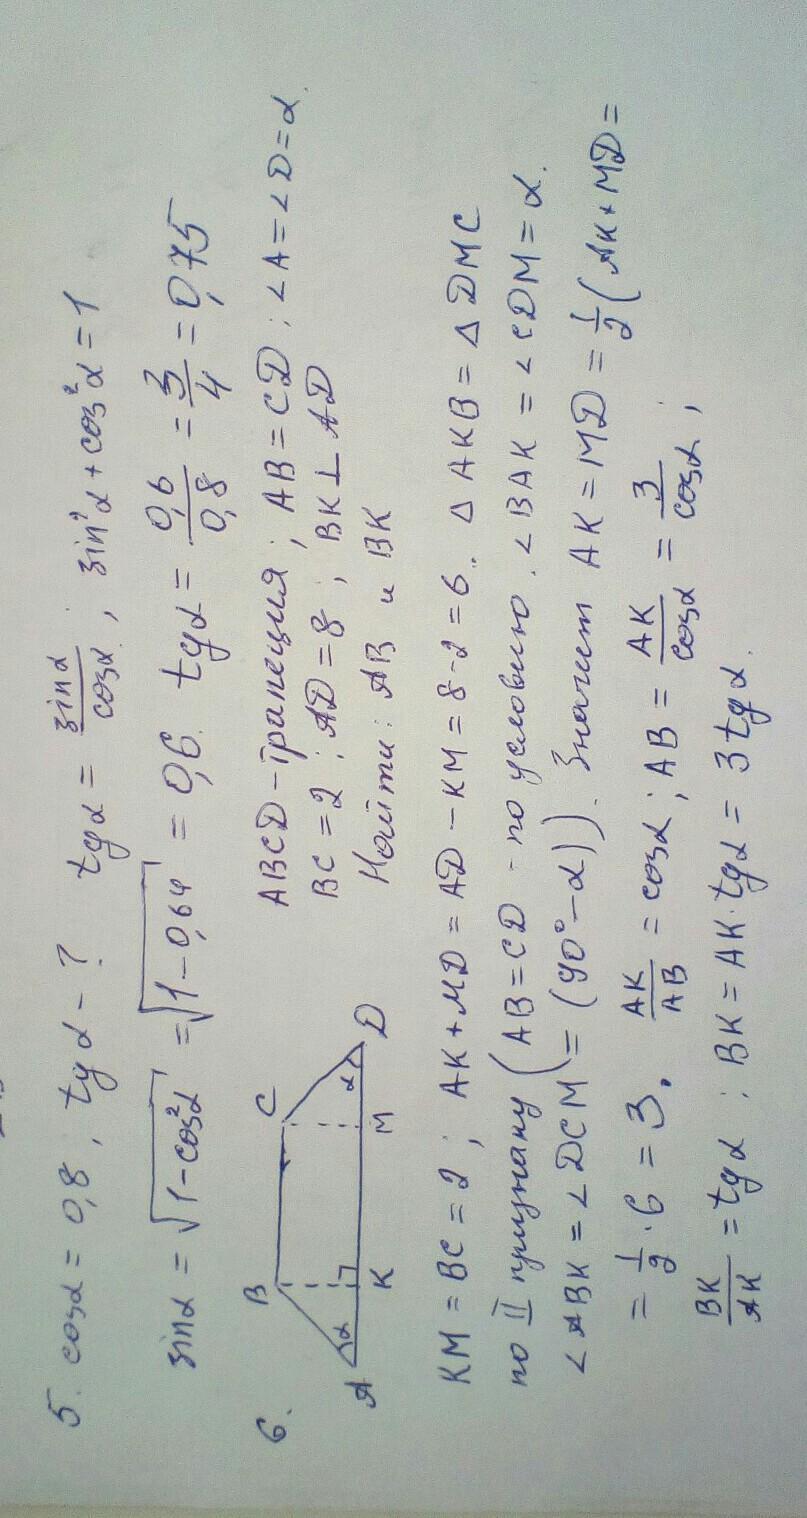 5. cosα = 0,8 ; tgα - ? tgα = sinα/cosα ; sin²α + cos²α = 1
sinα = √(1-cos²α) = √(1-0,64) = 0,6. tgα = 0,6/0,8 = 3/4 = 0,75
6.
B C
A K M D
α α
ABCD - трапеция ; AB = CD ; ∠A = ∠D = α.
BC = 2 ; AD = 8 ; BK ⊥ AD
Найти: AB и BK
KM = BC = 2 ; AK + MD = AD - KM = 8-2 = 6. △AKB = △DMC
по II признаку (AB = CD - по условию. ∠BAK = ∠CDM = α.
∠ABK = ∠DCM = (90° - α)). Значит AK = MD = 1/2 (AK + MD =
= 1/2 · 6 = 3. AK/AB = cosα ; AB = AK/cosα = 3/cosα ;
BK/AK = tgα ; BK = AK · tgα = 3tgα.